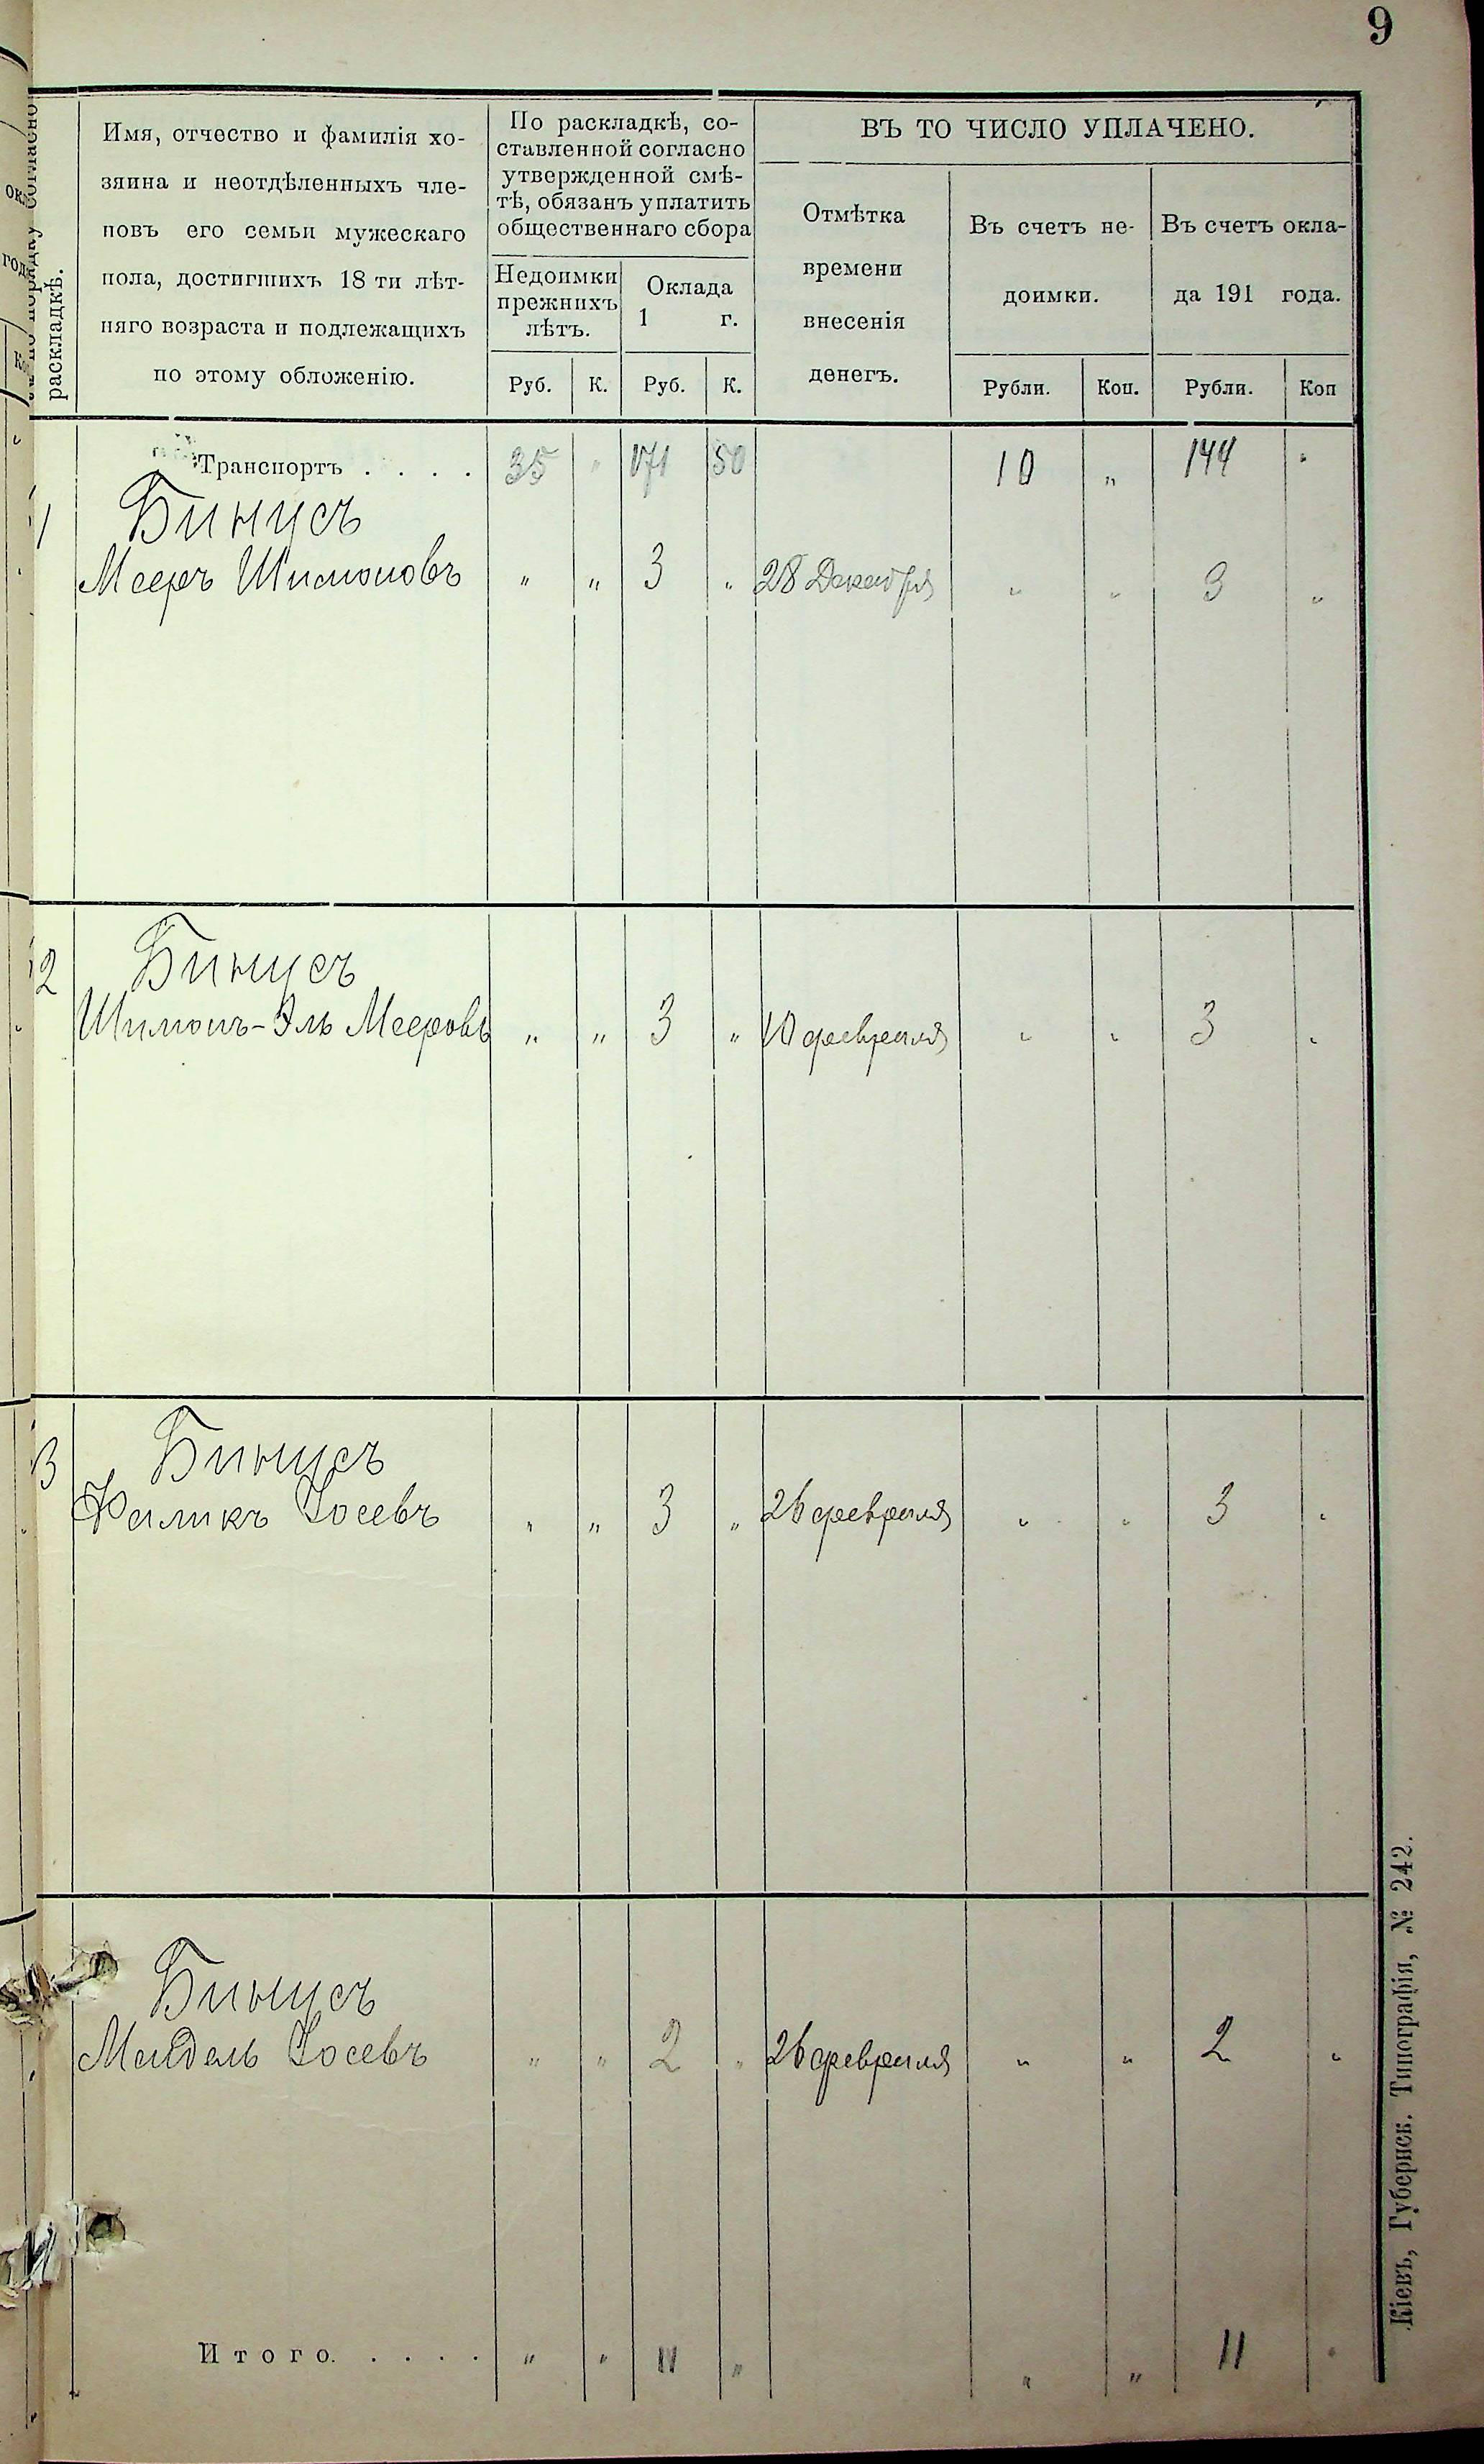 9
раскладкѣ.
Имя, отчество и фамилія хо-
зяина и неотдѣленныхъ чле-
новъ его семьи мужескаго
пола, достигшихъ 18 ти лѣт-
няго возраста и подлежащихъ
по этому обложенію.
По раскладкѣ, со-
ставленной согласно
утвержденной смѣ-
тѣ, обязанъ уплатить
общественнаго сбора
Недоимки
прежнихъ
лѣтъ.
Оклада
1 г.
Руб. К. Руб. К.
ВЪ ТО ЧИСЛО УПЛАЧЕНО.
Отмѣтка
времени
внесенія
денегъ.
Въ счетъ не-
доимки.
Въ счетъ окла-
да 191 года.
Рубли. Коп. Рубли. Коп
Транспортъ . . . . 35 " 171 50 10 " 144 "
1 Бинусъ
Мееръ Шимоновъ " " 3 " 28 Декабря " " 3 "
2 Бинусъ
Шимонъ-Эль Мееровъ " " 3 " 10 февраля " " 3 "
3 Бинусъ
Фаликъ Іосевъ " " 3 " 26 февраля " " 3 "
Бинусъ
Мандель Іосевъ " " 2 " 26 февраля " " 2 "
Итого. . . . . " " 11 " " " 11 "
Кіевъ, Губернск. Типографія, № 242.